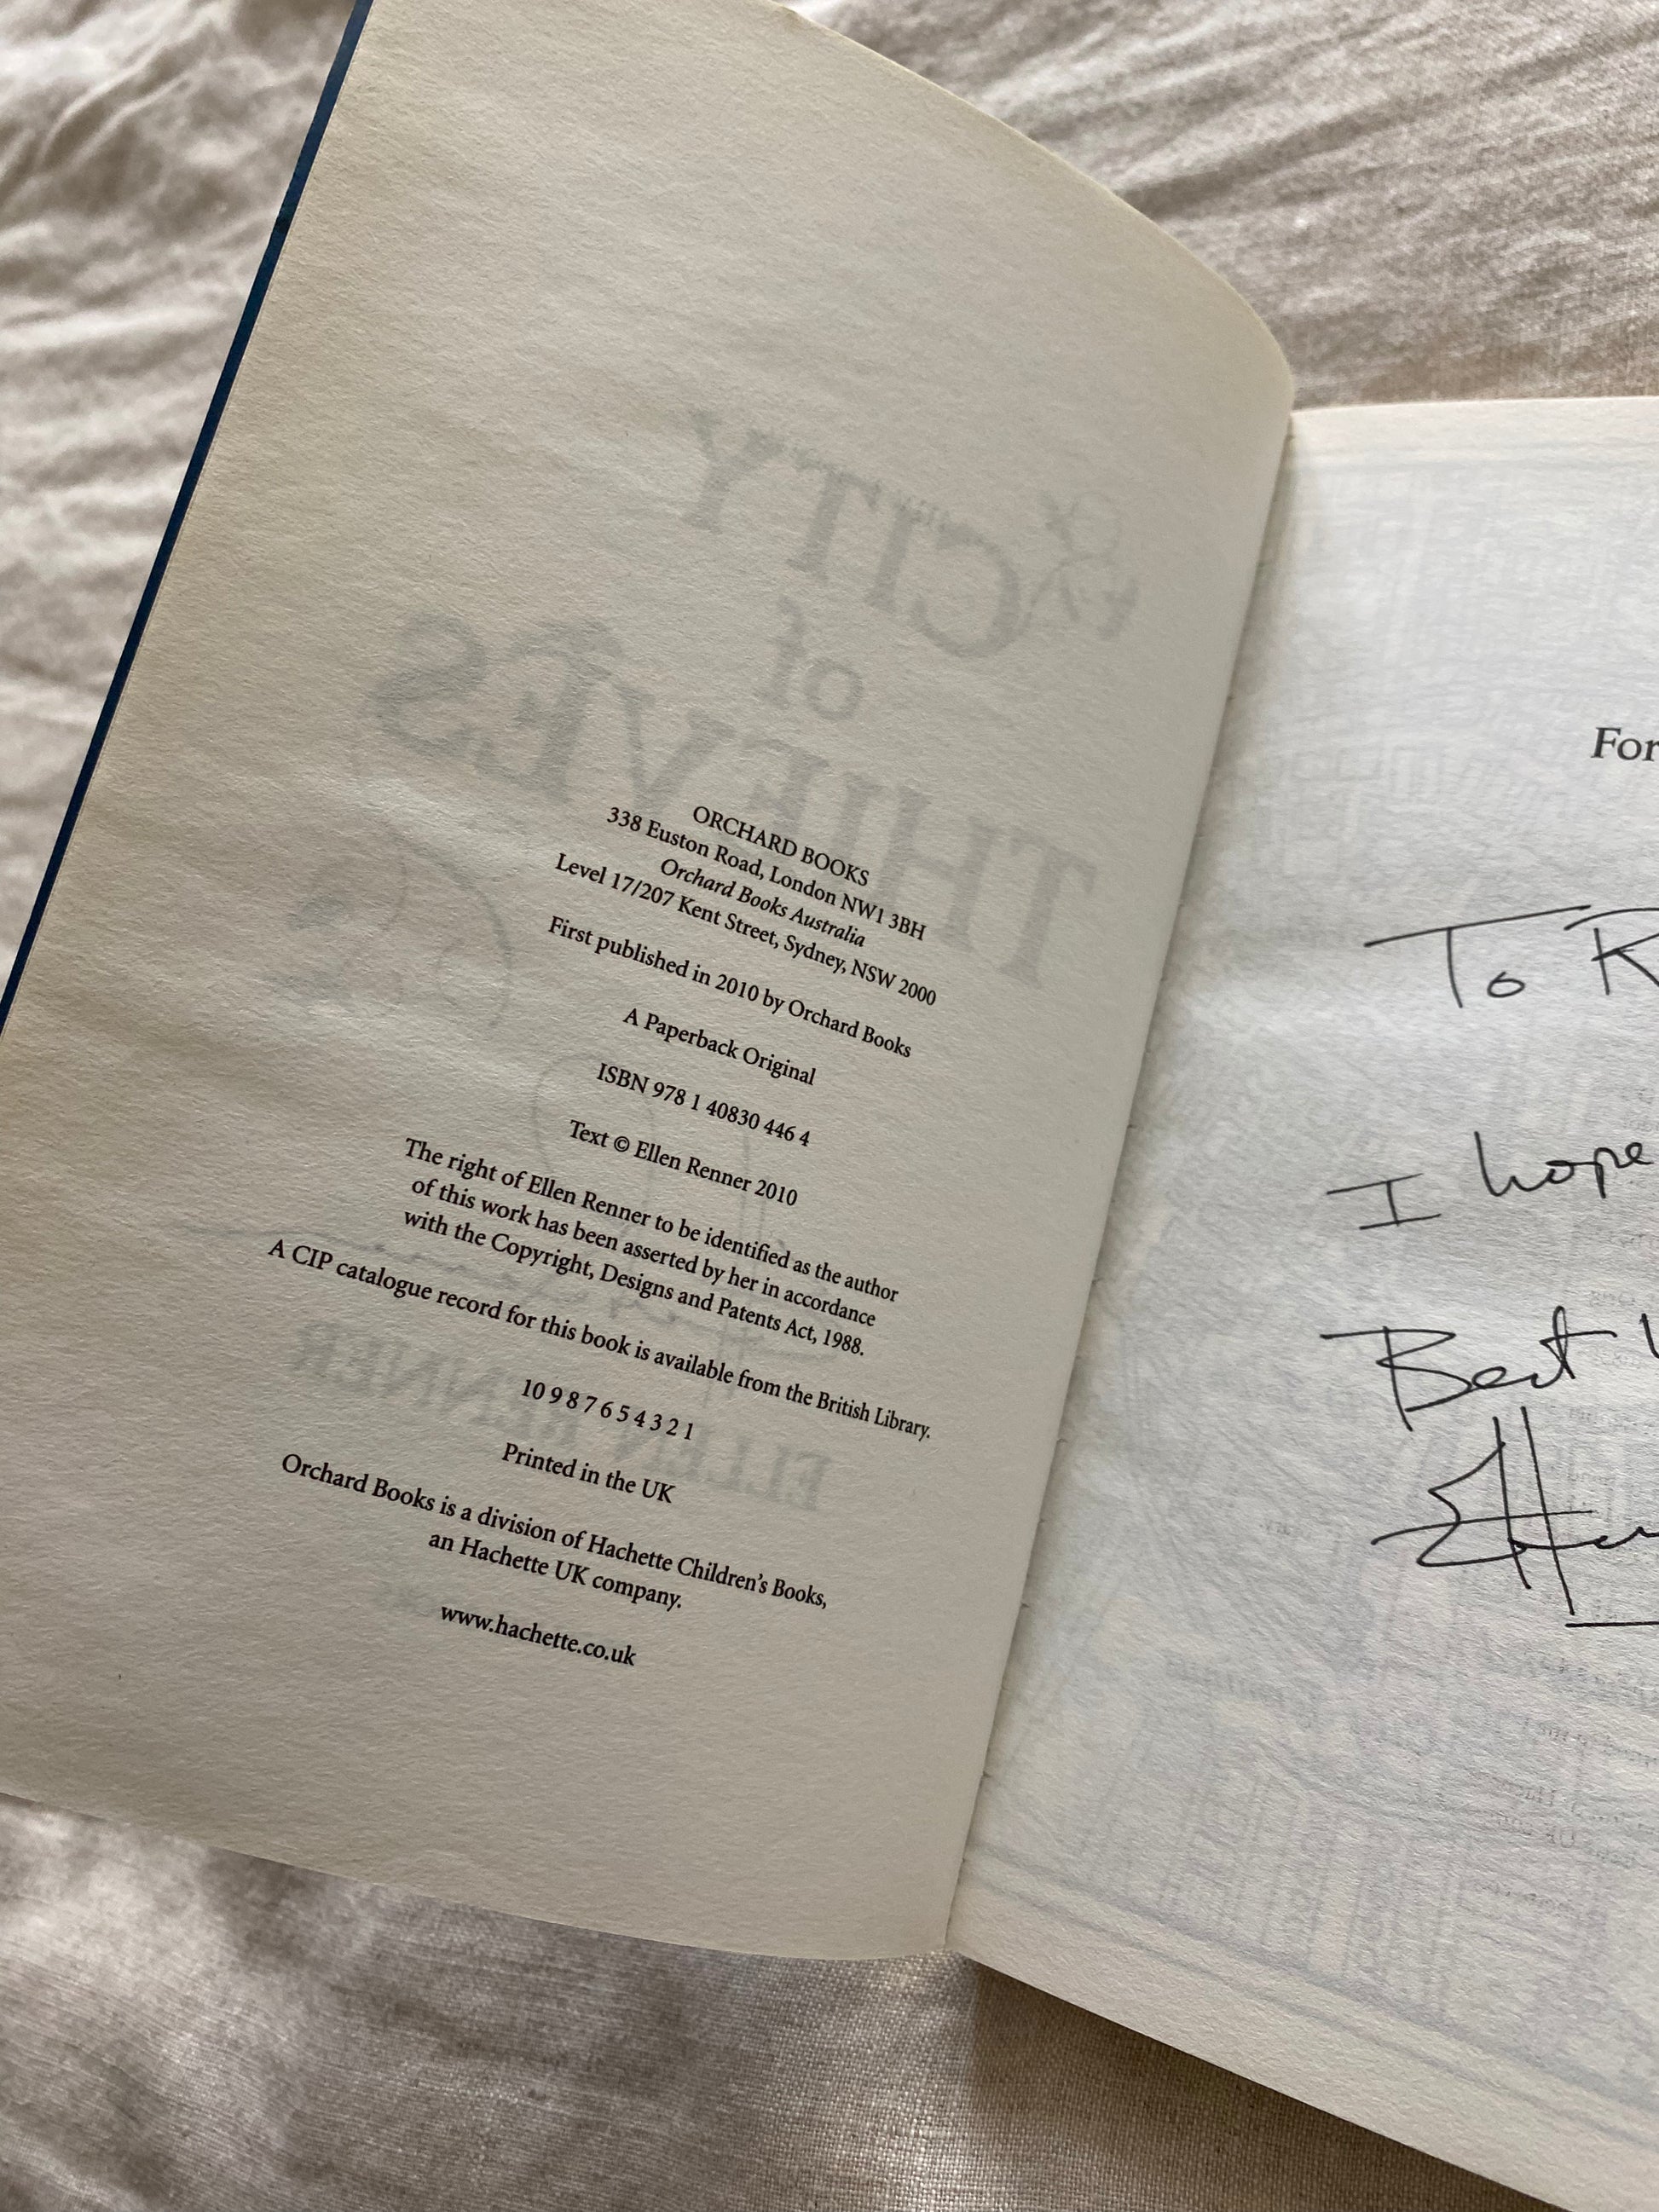 CITY
of
THIEVES
ELLEN RENNER
ORCHARD BOOKS
338 Euston Road, London NW1 3BH
Orchard Books Australia
Level 17/207 Kent Street, Sydney, NSW 2000
First published in 2010 by Orchard Books
A Paperback Original
ISBN 978 1 40830 446 4
Text © Ellen Renner 2010
The right of Ellen Renner to be identified as the author
of this work has been asserted by her in accordance
with the Copyright, Designs and Patents Act, 1988.
A CIP catalogue record for this book is available from the British Library.
10 9 8 7 6 5 4 3 2 1
Printed in the UK
Orchard Books is a division of Hachette Children's Books,
an Hachette UK company.
www.hachette.co.uk
For
To R
I hope
Best